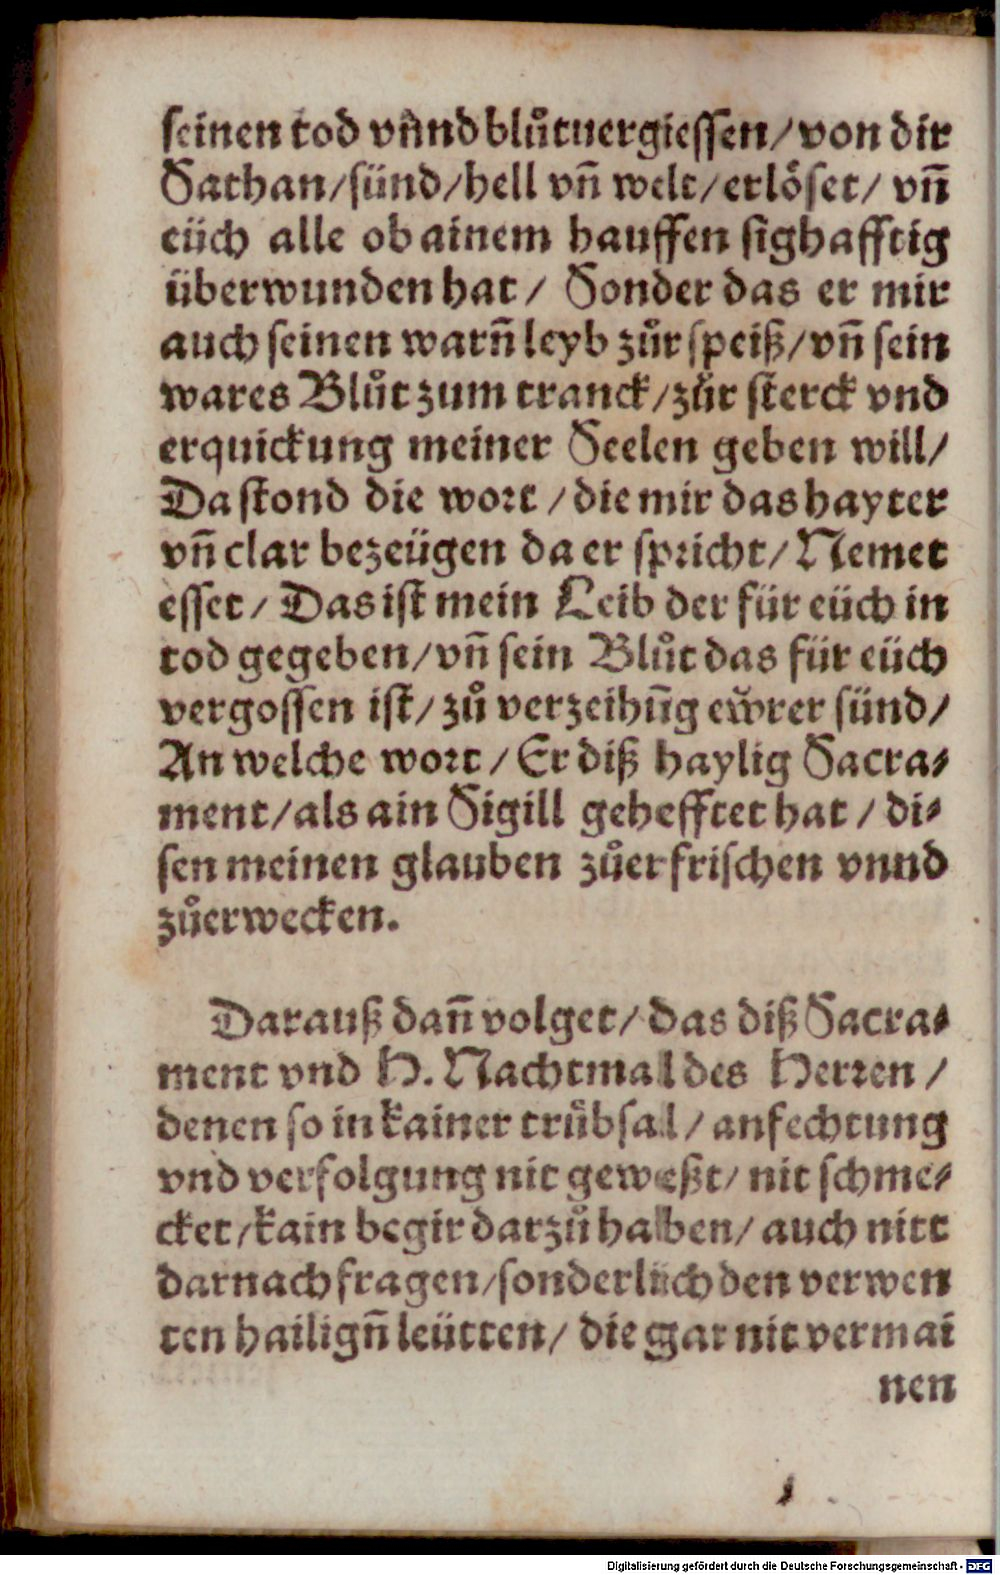 seinen tod vnnd blůtuergiessen/ von dir
Sathan/ sünd/ hell vñ welt/ erlöset/ vñ
eüch alle ob ainem hauffen sighafftig
überwunden hat/ Sonder das er mir
auch seinen warñ leyb zůr speiß/ vñ sein
wares Blůt zum tranck/ zůr sterck vnd
erquickung meiner Seelen geben will/
Da stond die wort/ die mir das hayter
vñ clar bezeügen da er spricht/ Nemet
esset/ Das ist mein Leib der für eüch in
tod gegeben/ vñ sein Blůt das für eüch
vergossen ist/ zů verzeihūg ewrer sünd/
An welche wort/ Er diß haylig Sacra⸗
ment/ als ain Sigill gehefftet hat/ di⸗
sen meinen glauben zůerfrischen vnnd
zůerwecken.
Darauß dañ volget/ das diß Sacra⸗
ment vnd H. Nachtmal des Herren/
denen so in kainer trübsal/ anfechtung
vnd verfolgung nit geweßt/ nit schme⸗
cket/ kain begir darzů haben/ auch nitt
darnach fragen/ sonderlich den verwen
ten hailigñ leütten/ die gar nit vermai
nen
Digitalisierung gefördert durch die Deutsche Forschungsgemeinschaft - DFG